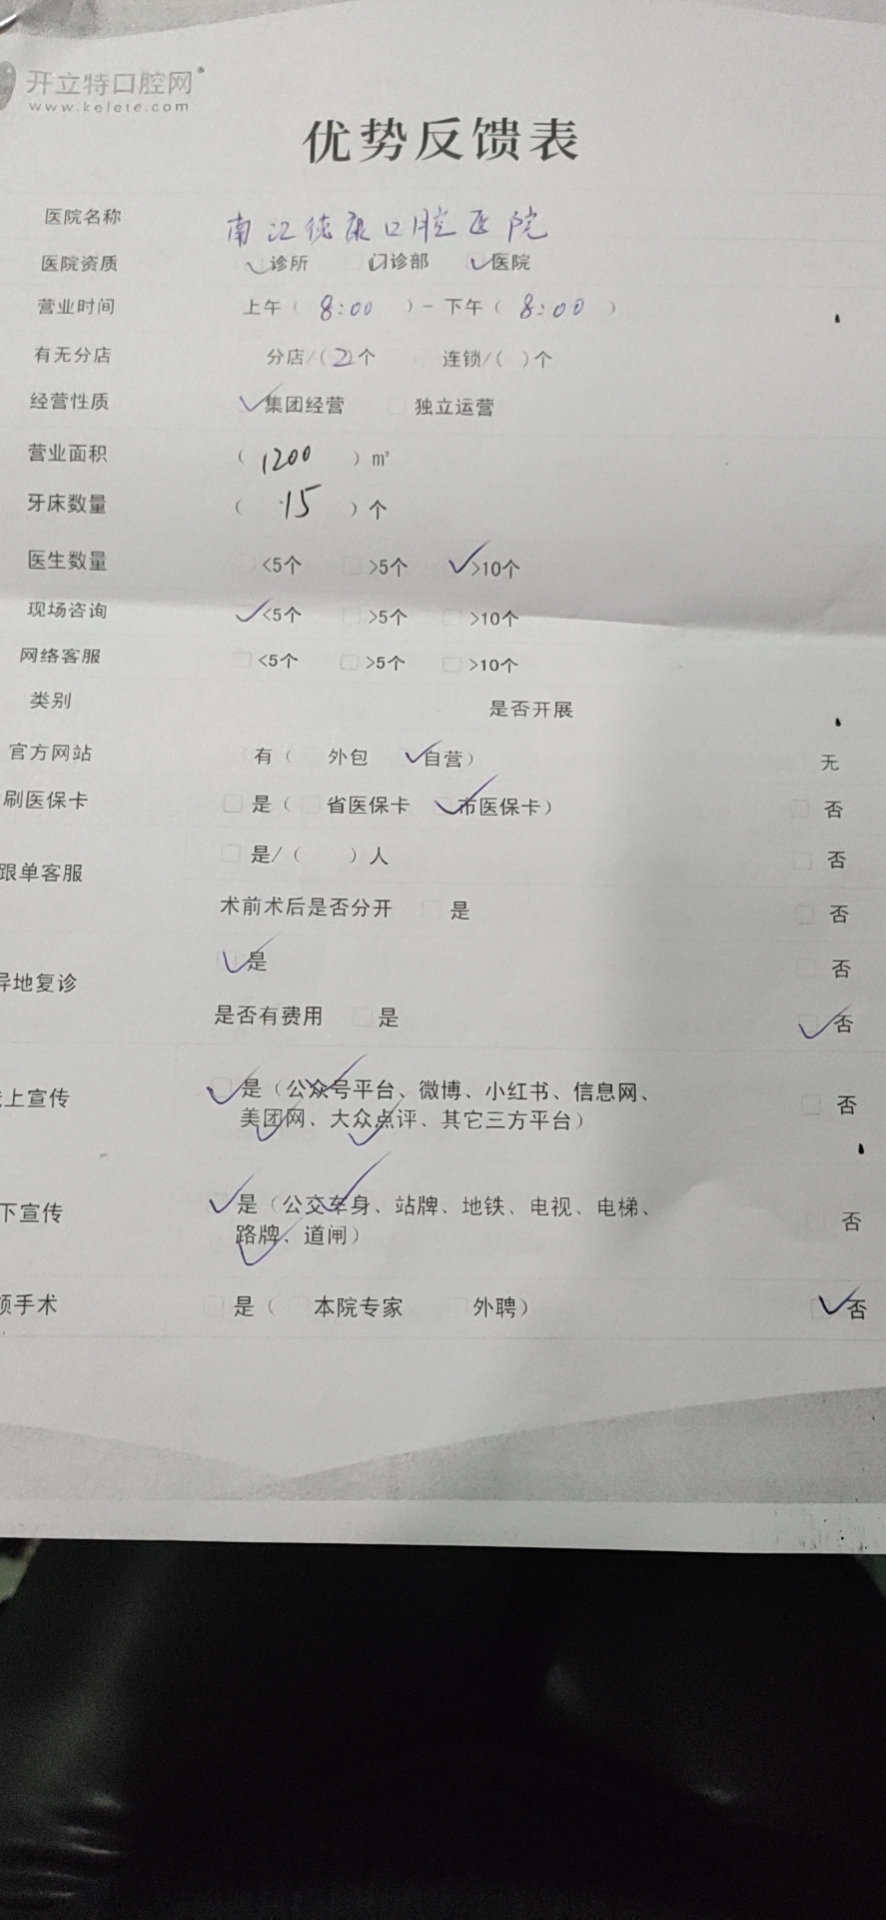 开立特口腔网®
www.kelete.com
优势反馈表
医院名称 南江德康口腔医院
医院资质 ✓诊所 ✓门诊部 ✓医院
营业时间 上午（8:00）- 下午（8:00）
有无分店 分店/(2)个 连锁/( )个
经营性质 ✓集团经营 □独立运营
营业面积 （1200）㎡
牙床数量 （15）个
医生数量 □<5个 □>5个 ✓>10个
现场咨询 ✓<5个 □>5个 □>10个
网络客服 □<5个 □>5个 □>10个
类别 是否开展
官方网站 有（ 外包 ✓自营） 无
刷医保卡 □是（□省医保卡 ✓市医保卡） □否
跟单客服 □是/（ ）人 □否
术前术后是否分开 □是 □否
异地复诊 ✓是 □否
是否有费用 □是 ✓否
上宣传 ✓是（公众号平台、微博、小红书、信息网、 □否
美团网、大众点评、其它三方平台）
下宣传 ✓是（公交车身、站牌、地铁、电视、电梯、 否
路牌、道闸）
手术 □是（□本院专家 □外聘） ✓否